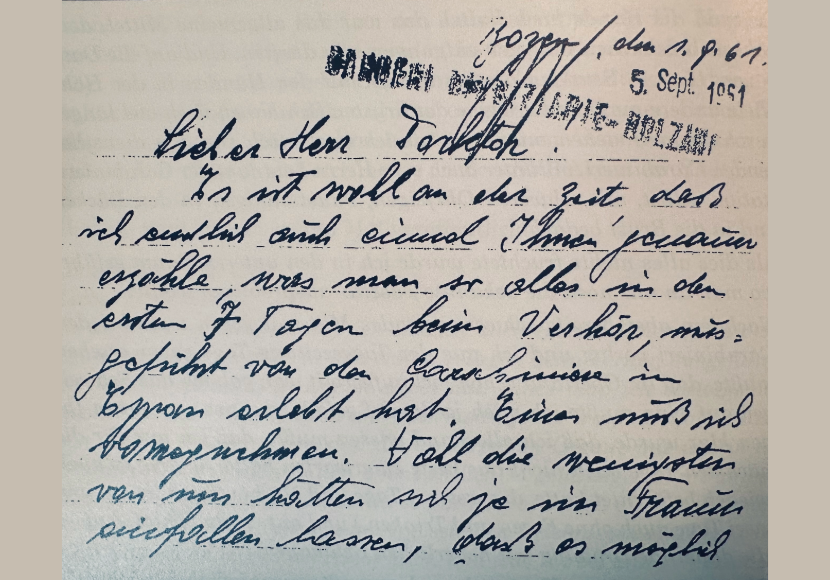 Bozen, den 1.9.61.
CARCERI GIUDIZIARIE - BOLZANO
5. Sept. 1961
Lieber Herr Docktor.
Es ist wohl an der Zeit, daß
ich endlich auch einmal Ihnen genauer
erzähle, was man so alles in den
ersten 7 Tagen beim Verhör, aus=
geführt von den Carabiniere in
Eppan erlebt hat. Eines muß ich
vorwegnehmen. Wohl die wenigsten
von uns hätten sich je im Traum
einfallen lassen, daß es möglich